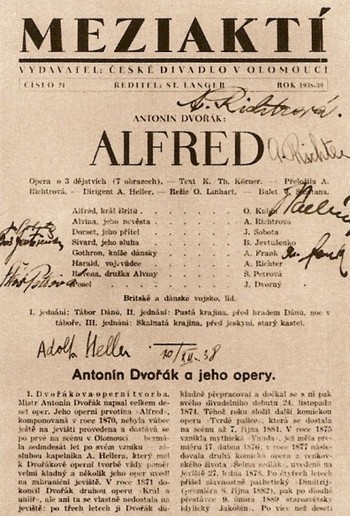 MEZIAKTÍ
VYDAVATEL: ČESKÉ DIVADLO V OLOMOUCI
ČÍSLO 21 ŘEDITEL: ST. LANGER ROK 1938-39
A. Richtrová.
ANTONÍN DVOŘÁK:
ALFRED
A. Richter
Opera o 3 dějstvích (7 obrazech). — Text K. Th. Körner. — Přeložila A.
Richtrová. — Dirigent A. Heller. — Režie O. Lanhart. — Balet
Alfréd, král Britů O.
Alvina, jeho nevěsta A. Richtrová
Dorset, jeho přítel J. Sobota
Sivard, jeho sluha B. Jevtušenko
Gothron, kníže dánský A. Frank
Harald, vojvůdce A. Richter
Rovena, družka Alviny S. Petrová
J. Dvorný
Britské a dánské vojsko, lid.
I. jednání: Tábor Dánů, II. jednání: Pustá krajina, před hradem Dánů, noc v
táboře, III. jednání: Skalnatá krajina, před jeskyní, starý kastel.
Adolf Heller 10/XII. 38
Antonín Dvořák a jeho opery.
I. Dvořákova operní tvorba.
Mistr Antonín Dvořák napsal celkem de-
set oper. Jeho operní prvotina »Alfred«,
komponovaná v roce 1870, nebyla vůbec
ještě na jevišti provedena a dostává se
po prvé na scénu v Olomouci
málo sedmdesát let po svém vzniku zá-
sluhou kapelníka A. Hellera, který měl
k Dvořákově operní tvorbě vždy pomůr
velmi kladný a několik jeho oper uvedl
na zahraniční jeviště. V roce 1871 do-
končil Dvořák druhou operu »Král a
uhlíř«, ale ani ta se vlastně nedostala na
jeviště; po třech letech ji Dvořák
kladně přepracoval a dočkal se s ní pak
svého divadelního debutu 24. listopadu
1874. Téhož roku složil další komickou
operu »Tvrdé palice«, která se dostala
na scénu až 7. října 1881. V roce 1875
vznikla mythická »Vanda«, jež měla pre-
miéru 17. dubna 1876; v roce 1877 násle-
dovala komická dvouaktová opera z ven-
kovského života »Šelma sedlák«, uvedená na
jeviště 27. ledna 1878. Po čtyřech letech
přišel slavnostně patheticky »Dimitrij«
(premiéra 8. října 1882), pak po dlouhé
přestávce 9. února 1889 starosvětsky
idylický »Jakobín«. Po více než deseti